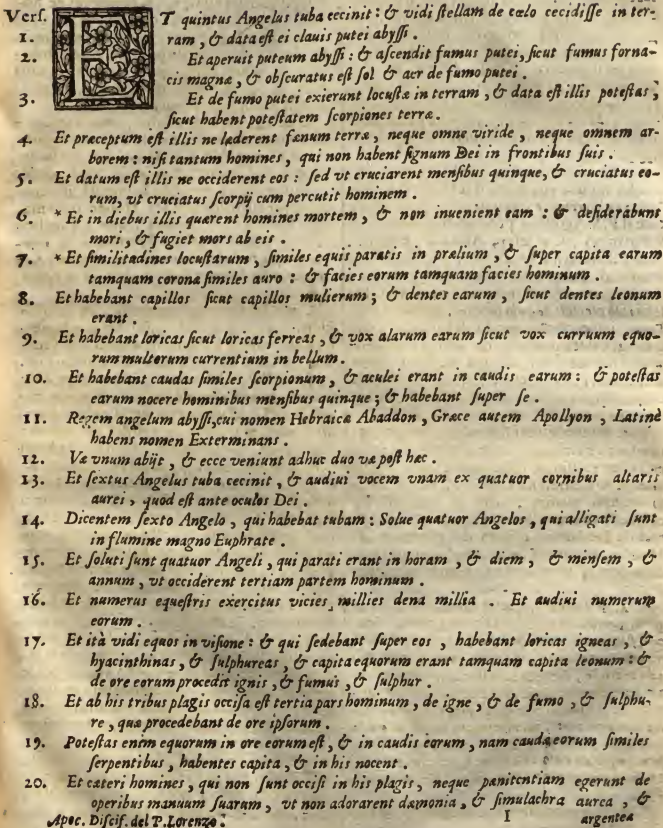 Verſ. ET quintus Angelus tuba cecinit : & vidi ſtellam de cœlo cecidiſſe in ter-
1. ram , & data eſt ei clauis putei abyſſi .
2. Et aperuit puteum abyſſi : & aſcendit fumus putei, ſicut fumus forna-
cis magnæ , & obſcuratus eſt ſol & aer de fumo putei .
3. Et de fumo putei exierunt locuſtæ in terram , & data eſt illis poteſtas ,
ſicut habent poteſtatem ſcorpiones terræ .
4. Et præceptum eſt illis ne læderent fænum terræ , neque omne viride , neque omnem ar-
borem : niſi tantum homines , qui non habent ſignum Dei in frontibus ſuis .
5. Et datum eſt illis ne occiderent eos : ſed vt cruciarent menſibus quinque, & cruciatus eo-
rum, vt cruciatus ſcorpij cum percutit hominem .
6. * Et in diebus illis quærent homines mortem , & non inuenient eam : & deſiderabunt
mori , & fugiet mors ab eis .
7. * Et ſimilitudines locuſtarum , ſimiles equis paratis in prælium , & ſuper capita earum
tamquam coronæ ſimiles auro : & facies eorum tamquam facies hominum .
8. Et habebant capillos ſicut capillos mulierum ; & dentes earum , ſicut dentes leonum
erant .
9. Et habebant loricas ſicut loricas ferreas , & vox alarum earum ſicut vox curruum equo-
rum multorum currentium in bellum .
10. Et habebant caudas ſimiles ſcorpionum , & aculei erant in caudis earum : & poteſtas
earum nocere hominibus menſibus quinque ; & habebant ſuper ſe .
11. Regem angelum abyſſi,cui nomen Hebraicæ Abaddon , Græce autem Apollyon , Latinè
habens nomen Exterminans .
12. Væ vnum abijt , & ecce veniunt adhuc duo væ poſt hæc .
13. Et ſextus Angelus tuba cecinit , & audiui vocem vnam ex quatuor cornibus altaris
aurei , quod eſt ante oculos Dei .
14. Dicentem ſexto Angelo , qui habebat tubam : Solue quatuor Angelos , qui alligati ſunt
in flumine magno Euphrate .
15. Et ſoluti ſunt quatuor Angeli , qui parati erant in horam , & diem , & menſem , &
annum , vt occiderent tertiam partem hominum .
16. Et numerus equeſtris exercitus vicies millies dena millia . Et audiui numerum
eorum .
17. Et ità vidi equos in viſione : & qui ſedebant ſuper eos , habebant loricas igneas , &
hyacinthinas , & ſulphureas , & capita equorum erant tamquam capita leonum : &
de ore eorum procedit ignis , & fumus , & ſulphur .
18. Et ab his tribus plagis occiſa eſt tertia pars hominum , de igne , & de fumo , & ſulphu-
re , quæ procedebant de ore ipſorum .
19. Poteſtas enim equorum in ore eorum eſt , & in caudis eorum , nam caudæ eorum ſimiles
ſerpentibus , habentes capita , & in his nocent .
20. Et cæteri homines , qui non ſunt occiſi in his plagis , neque pænitentiam egerunt de
operibus manuum ſuarum , vt non adorarent dæmonia , & ſimulachra aurea , &
Apoc. Diſciſ. del P. Lorenzo . I argentea